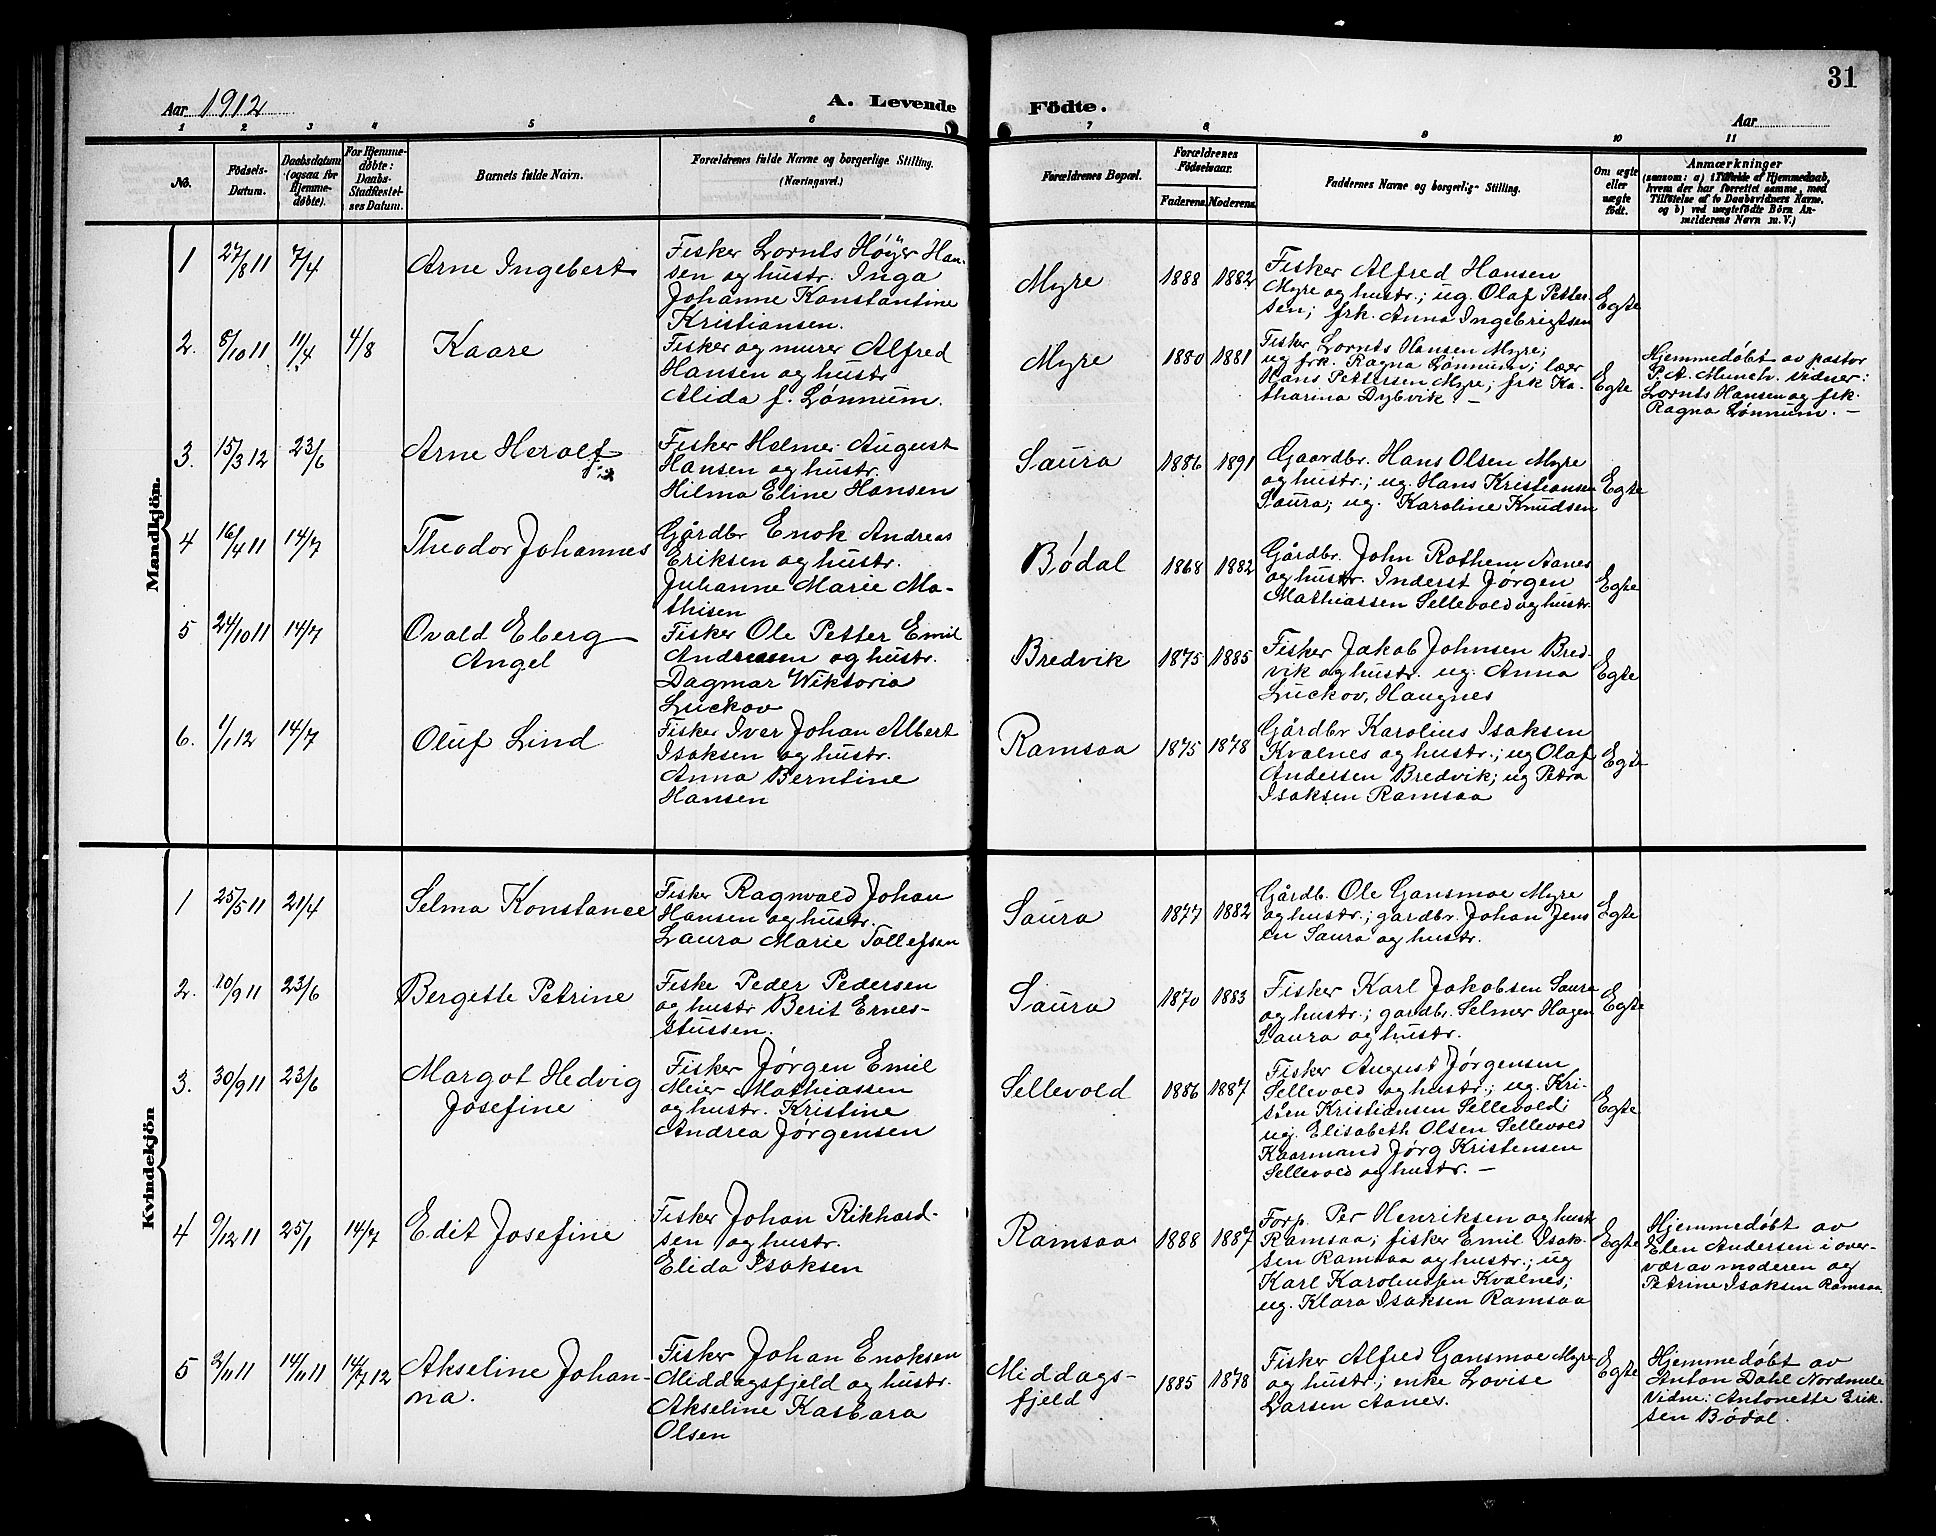 31
Aar 1912
A. Levende Födte.
Aar
1 2 3 4 5 6 7 8 9 10 11
No.
Födsels-
Datum.
Daabsdatum
(ogsaa for
Hjemme-
døbte).
For Hjemme-
døbte:
Daabs-
Stadfæstel-
ses Datum.
Barnets fulde Navn.
Forældrenes fulde Navne og borgerlige Stilling.
(Næringsvei.)
Forældrenes Bopæl.
Forældrenes
Födselsaar.
Faderens. Moderens.
Faddernes Navne og borgerlige Stilling.
Om ægte
eller
uægte
født.
Anmærkninger
(saasom: a) i Tilfælde af Hjemmedaab,
hvem der har forrettet samme, med
Tilføielse af to Daabsvidners Navne,
og b) ved uægtefødte Börn An-
melderens Navn m. V.)
Mandkjön.
1
27/8 11
7/4
Arne Ingebert
Fisker Lornts Høyer Han-
sen og hustr. Inga
Johanne Konstantine
Kristiansen.
Myre
1888
1882
Fisker Alfred Hansen
Myre og hustr.; ug. Olaf Petter-
sen; frk. Anna Ingebrigtsen
Egte
2.
8/10 11
11/4
4/8
Kaare
Fisker og murer Alfred
Hansen og hustr
Alida f. Lønnum.
Myre
1880
1881
Fisker Lornts Hansen Myre;
ug frk. Ragna Lønnum; lærer
Hans Pettersen Myre; frk Ka-
tharina Dybvik —
Egte
Hjemmedøbt av pastor
P. A. Munch. vidner:
Lornts Hansen og frk.
Ragna Lønnum. —
3.
15/3 12
23/6
Arne Herolf
Fisker Helmer August
Hansen og hustr.
Hilma Eline Hansen
Saura
1886
1891
Gaardbr. Hans Olsen Myre
og hustr.; ug. Hans Kristiansen
Saura; ug. Karoline Knudsen
Egte
4
16/4 11
14/7
Theodor Johannes
Gårdbr Enok Andreas
Eriksen og hustr.
Juhanne Marie Ma-
thisen
Bødal
1868
1882
Gårdbr. John Rothem Aanes
og hustr. Inderst Jørgen
Mathiassen Sellevold og hustr.
Egte
5
24/10 11
14/7
Ovald Eberg
Angel
Fisker Ole Petter Emil
Andreasen og hustr.
Dagmar Wiktoria
Luckov
Bredvik
1875
1885
Fisker Jakob Johnsen Bred-
vik og hustr. ug. Anna
Luckov, Haugnes
Egte
6.
1/1 12
14/7
Oluf Lind
Fisker Iver Johan Albert
Isaksen og hustr.
Anna Berntine
Hansen
Ramsaa
1875
1878
Gårdbr Karolius Isaksen
Kvalnes og hustr.; ug Olaf
Andersen Bredvik; ug Petra
Isaksen Ramsaa
Egte
Kvindekjön
1
25/5 11
21/4
Selma Konstance
Fisker Ragnvald Johan
Hansen og hustr.
Laura Marie Tollefsen
Saura
1877
1882
Gårdb. Ole Gansmoe Myre
og hustr.; gardbr. Johan Jens
en Saura og hustr.
Egte
2.
10/9 11
23/6
Bergette Petrine
Fiske Peder Pedersen
og hustr Berit Ernes-
stussen.
Saura
1870
1883
Fisker Karl Jakobsen Saura
og hustr.; gardbr. Selmer Hagen
Saura og hustr.
Egte
3.
30/9 11
23/6
Margot Hedvig
Josefine
Fisker Jørgen Emil
Meier Mathiassen
og hustr. Kristine
Andrea Jørgensen
Sellevold
1886
1887
Fisker August Jørgensen
Sellevold og hustr.; ug. Kri-
stien Kristiansen Sellevold;
ug. Elisabeth Olsen Sellevold
Kaarmand Jørg Kristensen
Sellevold og hustr. —
Egte
4
9/12 11
25/1
14/7
Edit Josefine
Fisker Johan Rikhard-
sen og hustr.
Elida Isaksen
Ramsaa
1888
1887
Forp. Per Henriksen og hustr
Ramsaa; fisker Emil Isak-
sen Ramsaa og hustr.; ug
Karl Karoliussen Kvalnes;
ug. Klara Isaksen Ramsaa
Egte
Hjemmedøbt av
Elen Andersen i over-
vær av moderen og
Petrine Isaksen Ramsaa.
5
2/11 11
14/11 11
14/7 12
Akseline Johan-
na.
Fisker Johan Enoksen
Middagsfjeld og hustr.
Akseline Kasbara
Olsen
Middags-
fjeld
1885
1878
Fisker Alfred Gansmoe Myre
og hustr.; enke Lovise
Larsen Aanes.
Egte
Hjemmedøbt av
Anton Dahl Nordmele
Vidne: Antonette Erik-
sen Bødal.